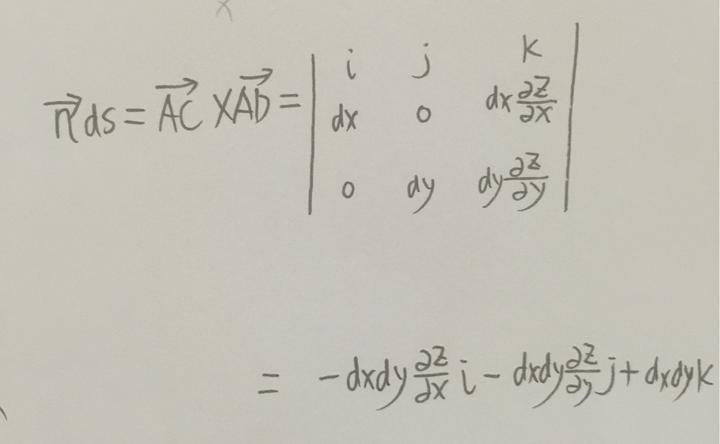 i j k
n⃗ ds = AC⃗ × AD⃗ = | dx 0 dx ∂z/∂x |
0 dy dy ∂z/∂y
= -dxdy ∂z/∂x i - dxdy ∂z/∂y j + dxdy k